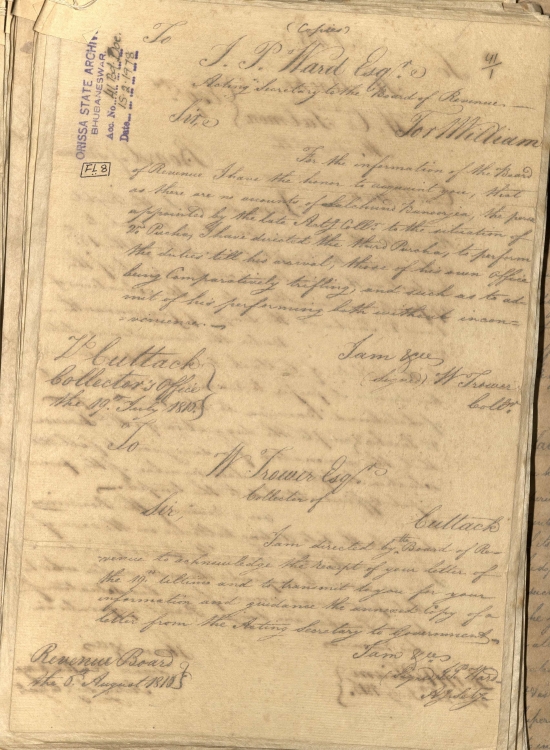 (Copies)
41/1
To
J. P. Ward Esqr.
Acting Secretary to the Board of Revenue.
Sir,
Fort William
For the information of the Board
of Revenue I have the honor to acquaint you, that
as there are no accounts of
appointed by the late Actg. Collr. to the situation of
I have directed the third to perform
the duties till his arrival, those of his own office
being comparatively trifling, and such as to ad-
mit of his performing both without incon-
venience.
Zh. Cuttack
Collector's Office
the 19th. July 181
I am &ca
Signed W Trower
Collr.
To
W Trower Esqr.
Collector of
Cuttack
Sir,
I am directed by the Board of Re-
venue to acknowledge the receipt of your letter of
the 19th. Ultimo and to transmit to you for your
information and guidance the annexed Copy of a
letter from the Acting Secretary to Government
I am &ca
Signed Ward
Revenue Board
the 6th. August 181
ORISSA STATE ARCHIV
BHUBANESWAR.
Acc No.
Date 15.2.1978
FL 8